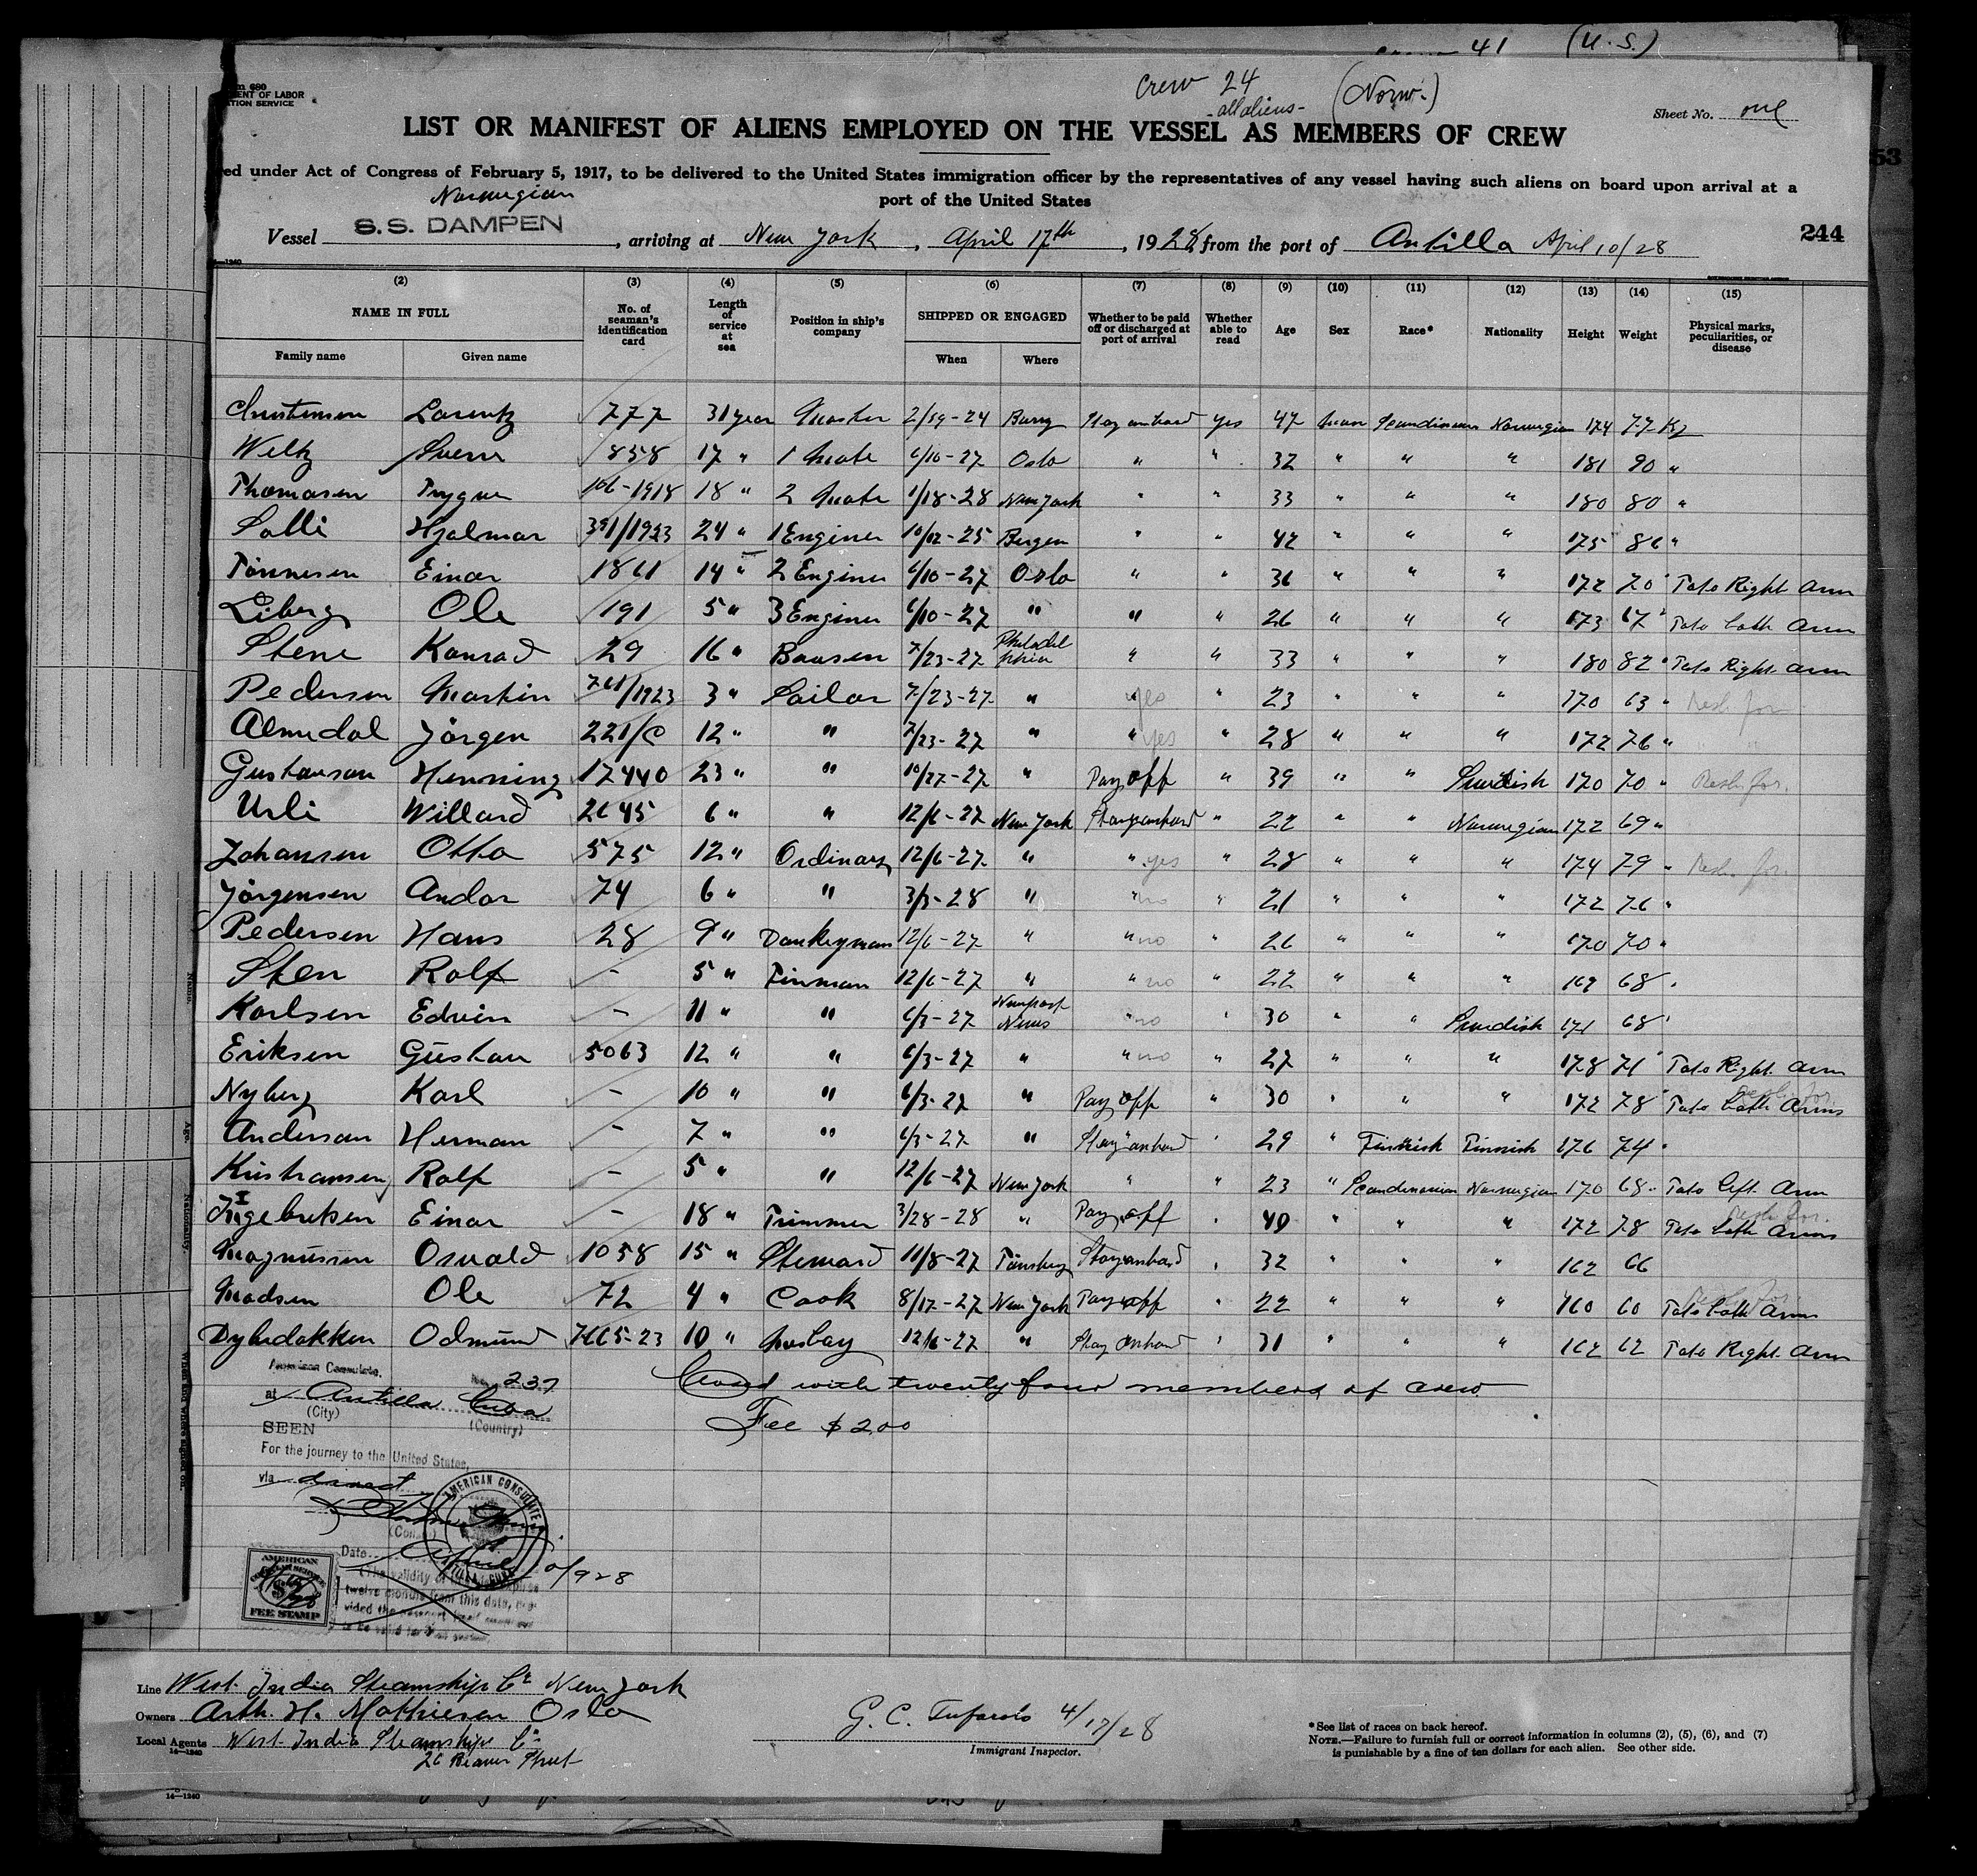 41 (U.S.)
Crew 24 (Norw.)
all aliens
Sheet No. one
680
ENT OF LABOR
TION SERVICE
LIST OR MANIFEST OF ALIENS EMPLOYED ON THE VESSEL AS MEMBERS OF CREW
ed under Act of Congress of February 5, 1917, to be delivered to the United States immigration officer by the representatives of any vessel having such aliens on board upon arrival at a
port of the United States
53
Norwegian
Vessel S.S. DAMPEN, arriving at New York, April 17th, 1928, from the port of Antilla April 10/28
244
(2) (3) (4) (5) (6) (7) (8) (9) (10) (11) (12) (13) (14) (15)
NAME IN FULL No. of seaman's identification card Length of service at sea Position in ship's company SHIPPED OR ENGAGED Whether to be paid off or discharged at port of arrival Whether able to read Age Sex Race* Nationality Height Weight Physical marks, peculiarities, or disease
Family name Given name When Where
Christensen Lorentz 777 31 year Master 2/19-24 Barry Stay onboard yes 47 man Scandinavian Norwegian 174 77 Kg
Weltz Sverre 858 17 " 1 Mate 6/10-27 Oslo " " 32 " " " 181 90 "
Thomasen Trygve 106-1918 18 " 2 Mate 1/18-28 New York " " 33 " " " 180 80 "
Solli Hjalmar 391/1923 24 " 1 Enginer 10/12-25 Bergen " " 42 " " " 175 86 "
Tönnesen Einar 1861 14 " 2 Enginer 6/10-27 Oslo " " 36 " " " 172 70 " Tato Right Arm
Liberg Ole 191 5 " 3 Enginer 6/10-27 " " " 26 " " " 173 67 " Tato both Arm
Stene Konrad 29 16 " Bausen 7/23-27 Philadelphia " " 33 " " " 180 82 " Tato Right Arm
Pedersen Martin 761/1923 3 " Sailor 7/23-27 " " yes " 23 " " " 170 63 "
Almedal Jörgen 221/C 12 " " 7/23-27 " " yes " 28 " " " 172 76 "
Gustavson Henning 17440 23 " " 10/27-27 " Pay off " 39 " " Swedish 170 70 "
Urli Willard 2645 6 " " 12/6-27 New York Stay onboard " 22 " " Norwegian 172 69 "
Johansen Otto 575 12 " Ordinary 12/6-27 " " yes " 28 " " " 174 79 "
Jörgensen Andor 74 6 " " 3/3-28 " " no " 21 " " " 172 76 "
Pedersen Hans 28 9 " Donkeyman 12/6-27 " " no " 26 " " " 170 70 "
Sten Rolf - 5 " Firman 12/6-27 " " no " 22 " " " 169 68 "
Karlsen Edvin - 11 " " 6/3-27 Newport News " no " 30 " " Swedish 171 68 "
Eriksen Gustav 5063 12 " " 6/3-27 " " no " 27 " " " 178 71 " Tato Right Arm
Nyberg Karl - 10 " " 6/3-27 " Pay off " 30 " " " 172 78 " Tato both Arms
Anderson Herman - 7 " " 6/3-27 " Stay onboard " 29 " Finnish Finnish 176 74 "
Kristiansen Rolf - 5 " " 12/6-27 New York " " 23 " Scandinavian Norwegian 170 68 " Tato Left Arm
Ingebriksen Einar - 18 " Trimmer 3/28-28 " Pay off " 40 " " " 172 78 Tato both Arms
Magnussen Osvald 1058 15 " Steward 11/8-27 Tönsberg Stay onboard " 32 " " " 162 66
Madsen Ole 72 4 " Cook 8/17-27 New York Pay off " 22 " " " 160 60 Tato both Arms
Dybedokken Odmund 7665-23 10 " Mesboy 12/6-27 " Stay onboard " 31 " " " 162 62 Tato Right Arm
American Consulate.
No. 237
at Antilla Cuba
(City) (Country)
Closed with twenty four members of crew
Fee $2.00
SEEN
For the journey to the United States,
via direct
(Consul)
AMERICAN CONSULATE
ANTILLA, CUBA
Date April 10/928
(The validity of
twelve months from this date, pro-
vided the passport
AMERICAN
$2
FEE STAMP
Line West India Steamship Co New York
Owners Arth. H. Mathiesen Oslo
Local Agents West India Steamship Co
26 Beaver Street
G. C. Tufarolo 4/17/28
Immigrant Inspector.
*See list of races on back hereof.
NOTE.—Failure to furnish full or correct information in columns (2), (5), (6), and (7)
is punishable by a fine of ten dollars for each alien. See other side.
14—1240